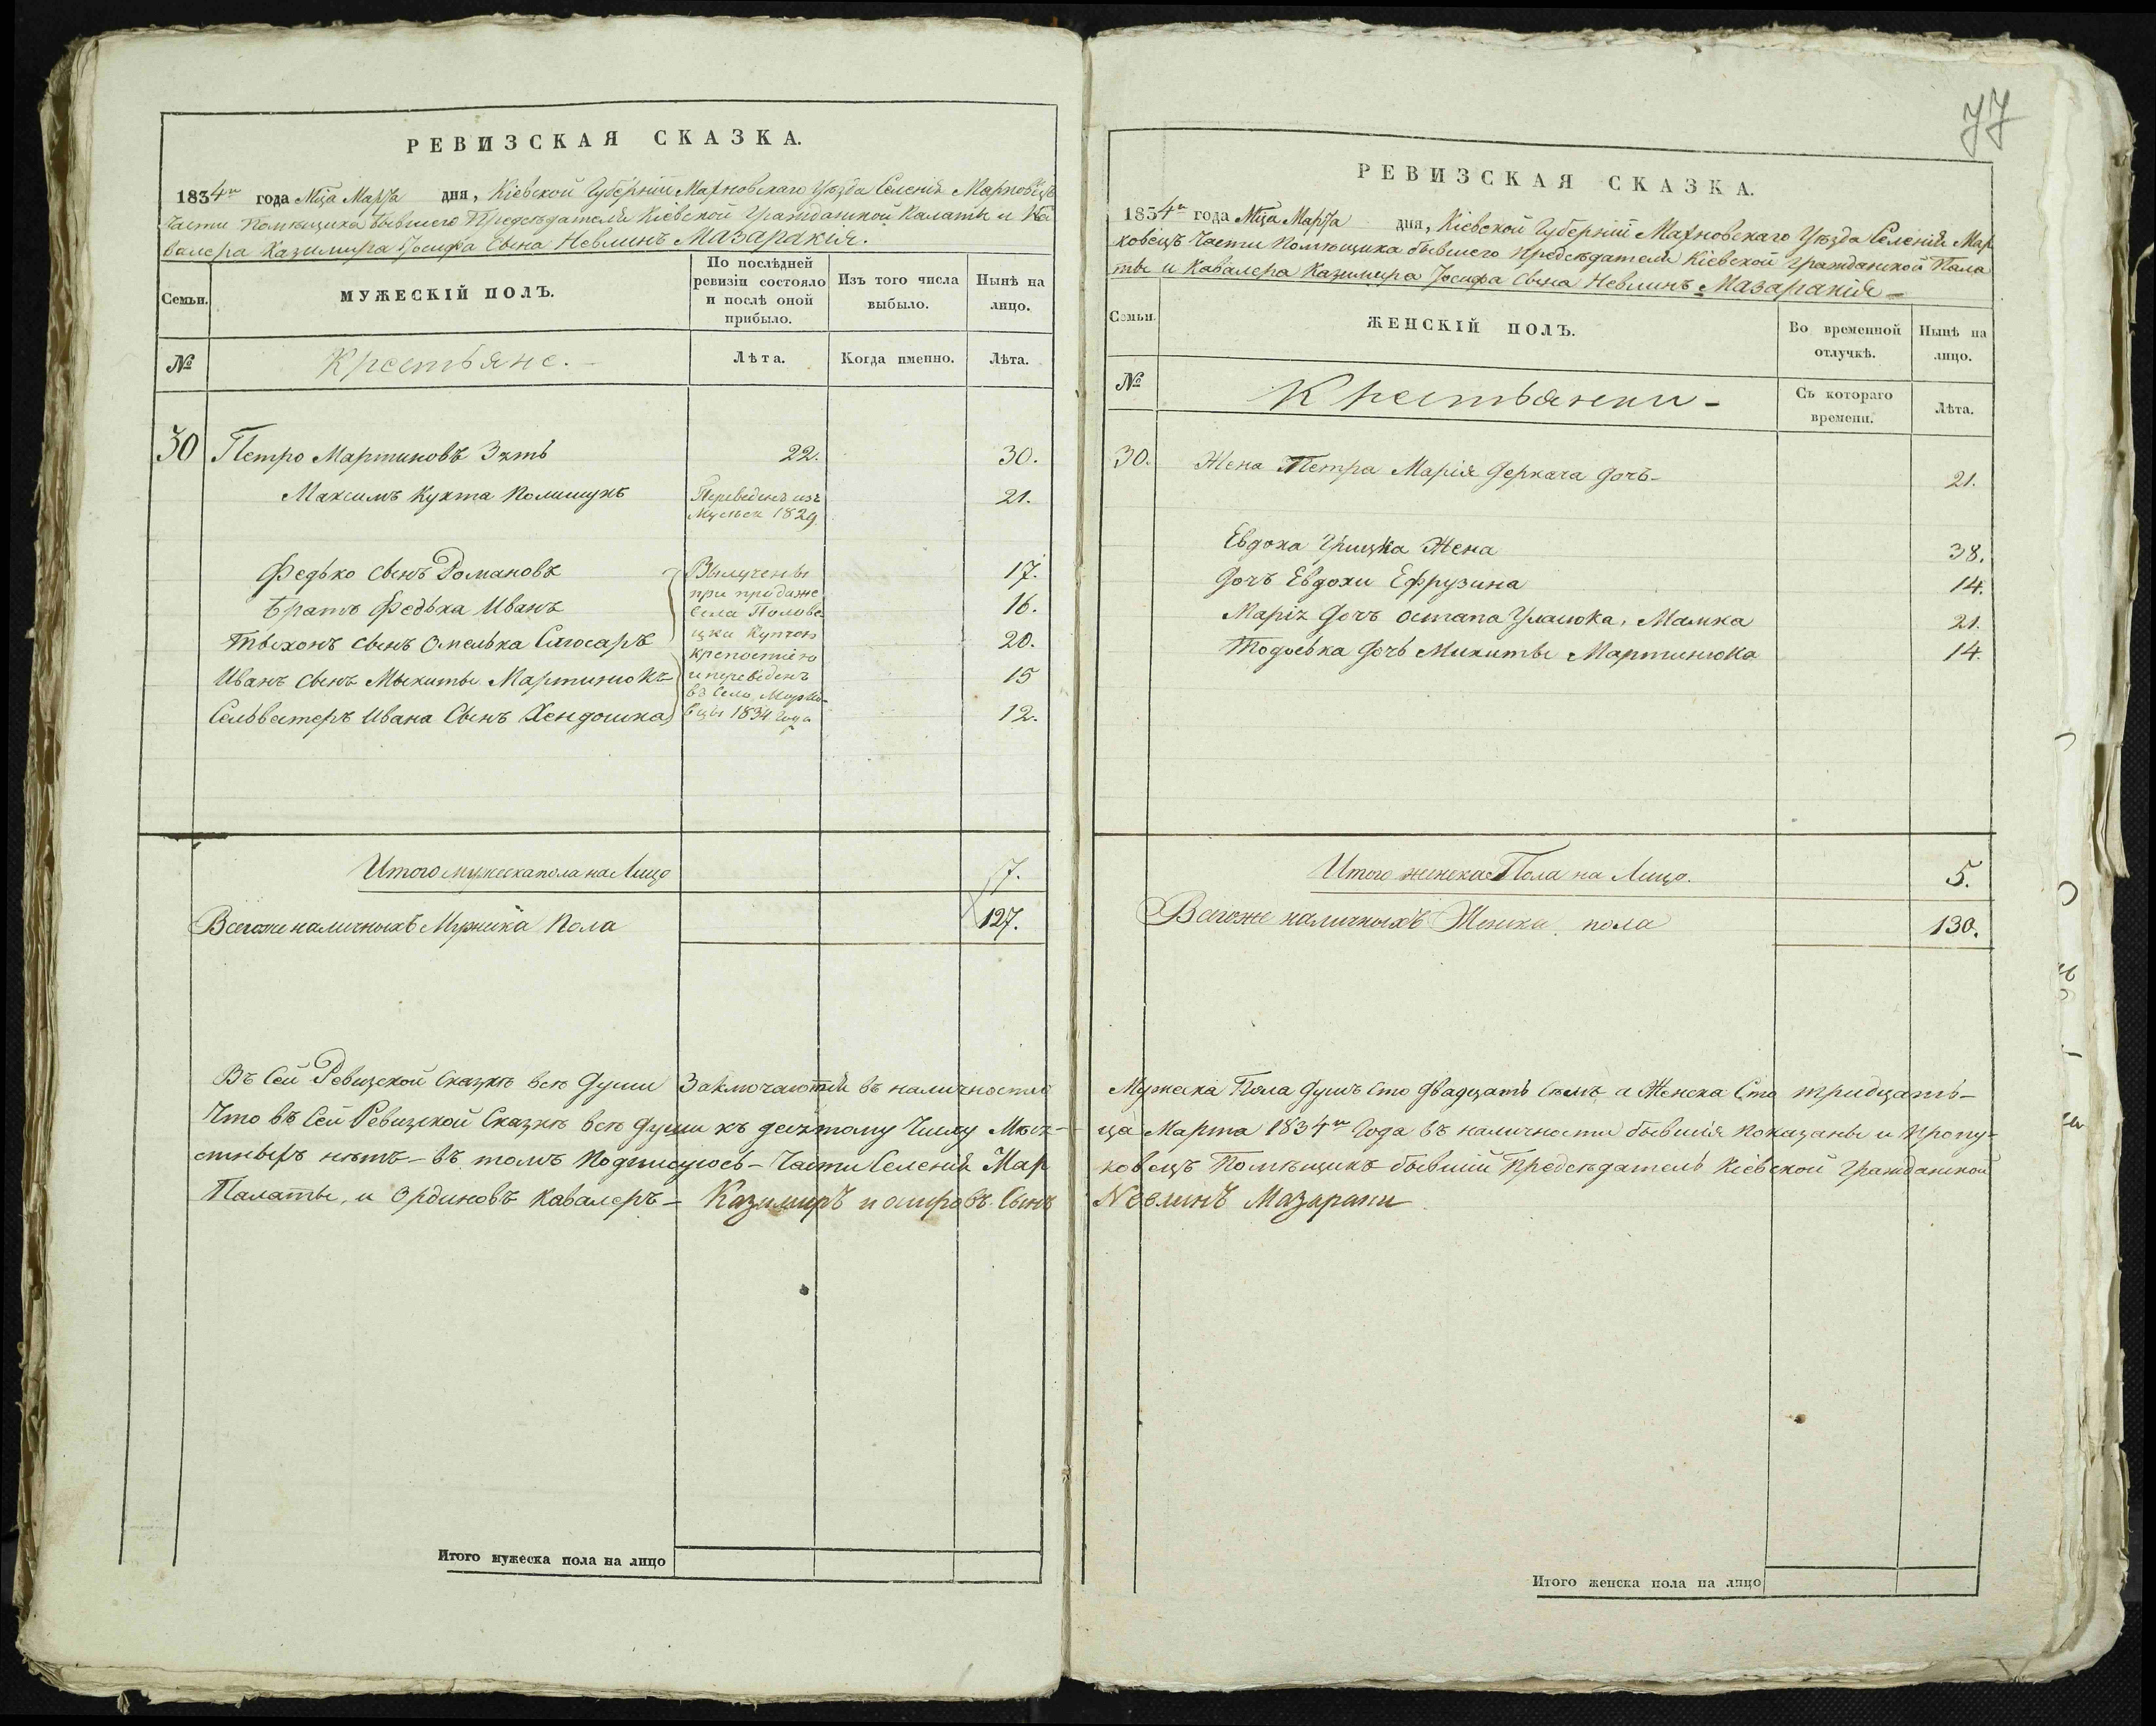 77
РЕВИЗСКАЯ СКАЗКА.
1834го года Мца Марта дня, Кіевской Губерніи Махновскаго Уѣзда Селенія Марковецъ
части Помѣщика бывшего Предсѣдателя Кіевской Гражданской Палаты и Ка
валера Казимира Іосифа Сына Невлинъ Мазаракія.
Семьи.
МУЖЕСКІЙ ПОЛЪ.
По послѣдней
ревизіи состояло
и послѣ оной
прибыло.
Изъ того числа
выбыло.
Нынѣ на
лицо.
№
Крестьяне.
Лѣта.
Когда именно.
Лѣта.
30 Петро Мартиновъ Зять 22. 30.
Максимъ Кухта Полищукъ Переведенъ изъ 21.
1829
Федько сынъ Романовъ Вылучены 17.
при продаже
Братъ Федька Иванъ села Полове 16.
цки Купчою
Тыхонъ сынъ Омелька Слюсаръ 20.
крепостію
Иванъ сынъ Мыкиты Мартинюкъ и переведенъ 15
въ село Марко-
Сельвестеръ Ивана Сынъ Хендошка вцы 1834 года 12.
Итого мужеска пола на Лицо 7.
Всегоже наличныхъ Мужеска Пола 127.
Въ Сей Ревизской Сказкѣ всѣ Души Заключаются въ наличности
Что въ Сей Ревизской Сказкѣ всѣ души къ десятому Числу Мѣся-
нѣтъ – въ томъ Подписуюсь – Части Селенія Мар
Палаты, и Ординовъ Кавалеръ – Казимиръ Сынъ
Итого мужеска пола на лицо
РЕВИЗСКАЯ СКАЗКА.
1834го года Мца Марта дня, Кіевской Губерніи Махновскаго Уѣзда Селенія Мар
ковецъ Части Помѣщика бывшего Предсѣдателя Кіевской Гражданской Пала
ты и Кавалера Казимира Іосифа Сына Невлинъ Мазаракія –
Семьи.
ЖЕНСКІЙ ПОЛЪ.
Во временной
отлучкѣ.
Нынѣ на
лицо.
№
Крестьянки –
Съ котораго
времени.
Лѣта.
30. Жена Петра Марія Деркача Дочъ – 21.
Евдоха Грицка Жена 38.
Дочъ Евдохи Ефрузина 14.
Марія Дочъ Остапа Уласюка, Мамка 21.
Тодоська Дочъ Микиты Мартинюка 14.
Итого женска Пола на Лицо. 5.
Всегоже наличныхъ Женска пола 130.
Мужеска Пола Душъ Сто Двадцать Семь а Женска Сто тридцать –
ца Марта 1834го Года въ наличности бывшія показаны и пропу-
ковецъ Помѣщикъ бывшій Предсѣдатель Кіевской Гражданской
Невлинъ Мазараки
Итого женска пола на лицо